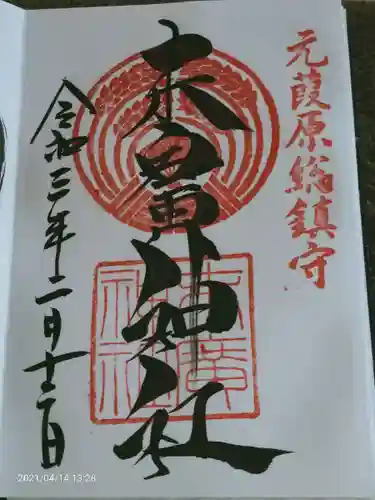 元葭原総鎮守
末廣神社
末廣神社
令和三年二月十二日
2021/04/14 13:26